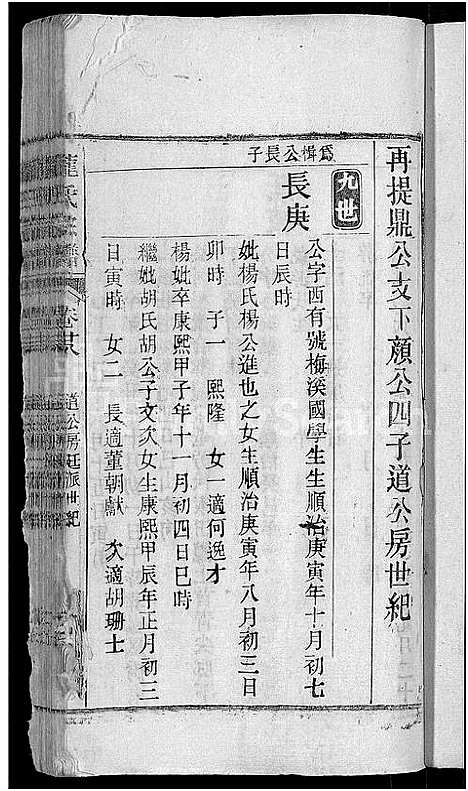 再提鼎公支下顏公四子道公房世紀
九世
爲楫公長子
長庚
公字西有號梅溪國學生生順治庚寅年十月初七
日辰時
妣楊氏楊公進也之女生順治庚寅年八月初三日
卯時 子一 熙隆 女一適何逸才
楊妣卒康熙甲子年十一月初四日巳時
繼妣胡氏胡公子文次女生康熙甲辰年正月初三
日寅時 女二 長適董朝獻 次適胡珊士
氏 譜
道公房廷派世紀